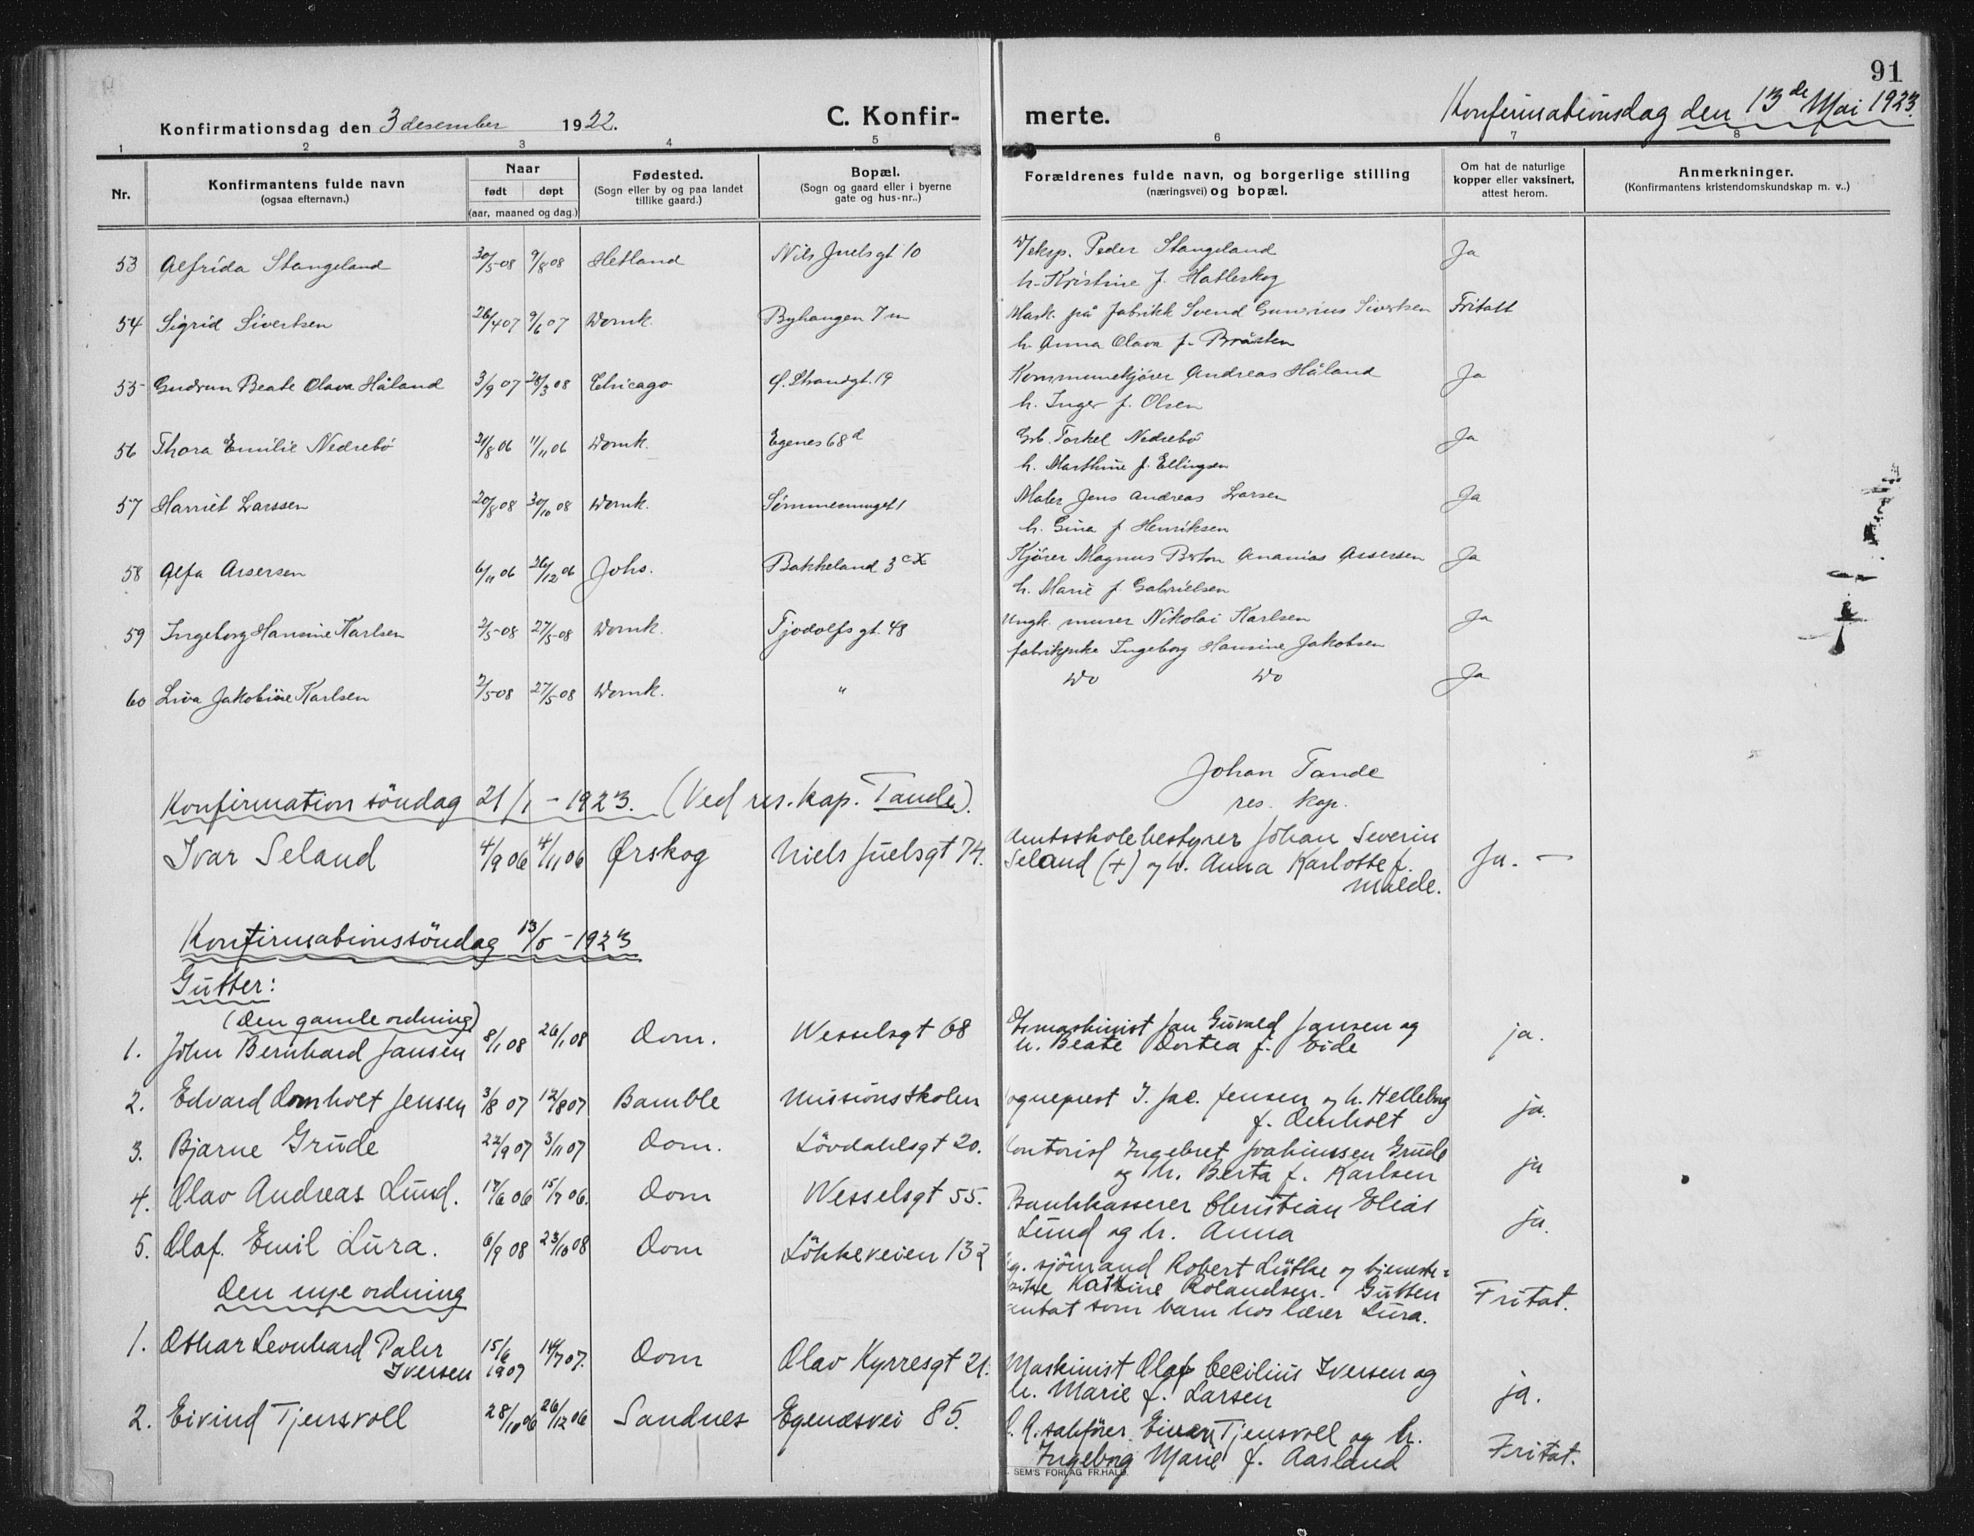 91
Konfirmationsdag den 3 desember 1922. C. Konfir-
merte. Konfirmationsdag den 13de Mai 1923.
1 2 3 4 5 6 7 8
Nr. Konfirmantens fulde navn (ogsaa efternavn.) Naar født døpt (aar, maaned og dag.) Fødested. (Sogn eller by og paa landet tillike gaard.) Bopæl. (Sogn og gaard eller i byerne gate og hus-nr..) Forældrenes fulde navn, og borgerlige stilling (næringsvei) og bopæl. Om hat de naturlige kopper eller vaksinert, attest herom. Anmerkninger. (Konfirmantens kristendomskundskap m. v..)
53 Alfrida Stangeland 30/5-08 9/8 08 Hetland Nils Juelsgt 10 Peder Stangeland Ja
h. Kristine f. Hatleskog
54 Sigrid Sivertsen 26/4 07 9/6 07 Domk. Byhaugen 7 Mask. på fabrikk Svend Gunerius Sivertsen Fritatt
h. Anna Olava f. Bråsten
55 Gudrun Beate Olava Håland 3/9 07 28/3 08 Chicago Ø. Strandgt. 19 Kommunekjører Andreas Håland Ja
h. Inger f. Olsen
56 Thora Emilie Nedrebö 21/8 06 11/11 06 Domk. Egenes 68 d Grb. Torkel Nedrebö Ja
h. Marthine f. Ellingsen
57 Harriet Larssen 20/8 08 30/10 08 Domk. Maler Jens Andreas Larsen Ja
h. Gina f. Henriksen
58 Alfa Assersen 6/11 06 26/12 06 Johs. Bakkeland 3 c Kjører Magnus Ananias Assersen Ja
h. Marie f. Gabrielsen
59 Ingeborg Hansine Karlsen 2/5-08 27/5-08 Domk. Tjodolfsgt. 48 Ungk. murer Nikolai Karlsen Ja
fabrikpike Ingeborg Hansine Jakobsen
60 Liva Jakobine Karlsen 2/5 08 27/5 08 Domk. " Do Do Ja
Johan Tande
res. kap.
Konfirmation söndag 21/1 - 1923. (Ved res. kap. Tande).
Ivar Seland 4/9 06 4/11 06 Ørskog Niels Juelsgt 74. Amtsskolebestyrer Johan Severin Ja. -
Seland (+) og h. Anna Karlotte f.
Malde.
Konfirmationssöndag 13/5 - 1923
Gutter:
(Den gamle ordning)
1. John Bernhard Jansen 8/1 08 26/1 08 Dom. Wesselsgt 68 Jan Guvald Jansen og ja.
h. Beate Dortea f. Eide
2. Edvard Domholt Jensen 3/8 07 12/8 07 Bamble Missionsskolen sogneprest I. Jac. Jensen og h. Helleborg ja.
f. Domholt
3. Bjarne Grude 22/9 07 3/11 07 Dom. Lövdahlsgt 20. Kontorist Ingebret Joakimssen Grude ja
og h. Berta f. Karlsen
4. Olav Andreas Lund. 17/6 06 15/7 06. Dom Wesselsgt 55. Bankkasserer Christian Elias ja.
Lund og h. Anna
5. Olaf Emil Lura. 6/9 08 23/10 08 Dom Lökkeveien 132 sjömand Robert Lütke og tjeneste- Fritat.
Katrine Rolandsen. Gutten
antat som barn hos lærer Lura.
Den nye ordning
1. Othar Leonhard Paler 15/6 1907 14/7 07. Dom Olav Kyrresgt 21. Maskinist Olaf Cecilius Iversen og ja.
Iversen h. Marie f. Larsen
2. Eivind Tjensvoll 28/10 06 26/12 06 Sandnes Egenæsvei 85. O.R. sakfører Einar Tjensvoll og h. Fritat.
Ingeborg Marie f. Aasland
SEM'S FORLAG FR.HALD.